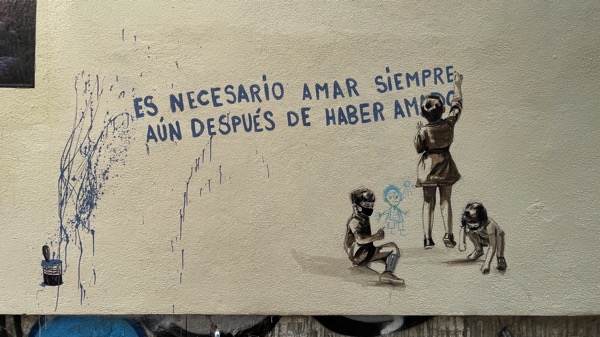 ES NECESARIO AMAR SIEMPRE,
AÚN DESPUÉS DE HABER AMADO